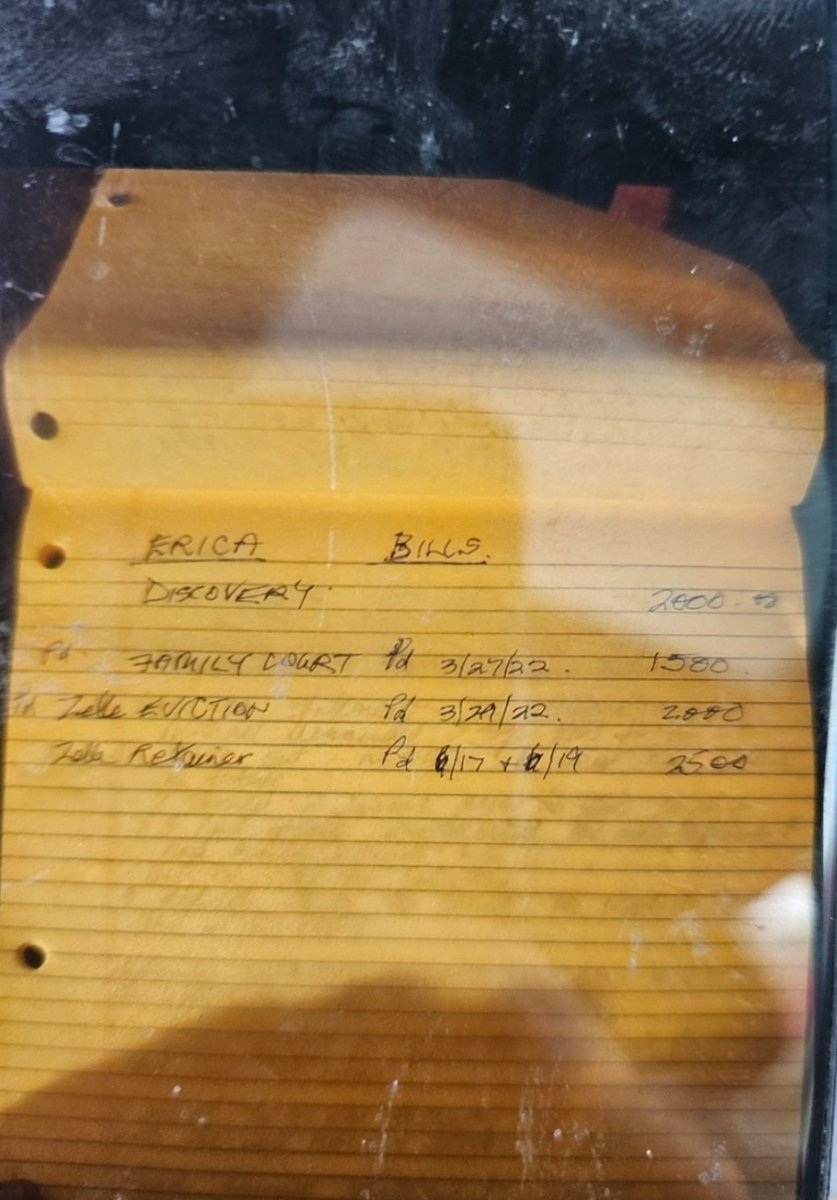 ERICA BILLS.
DISCOVERY. 2000.00
Pd FAMILY COURT Pd 3/27/22. 1500
Pd Zelle EVICTION Pd 3/29/22. 2000
Zelle Retainer Pd /17 + /19 2500